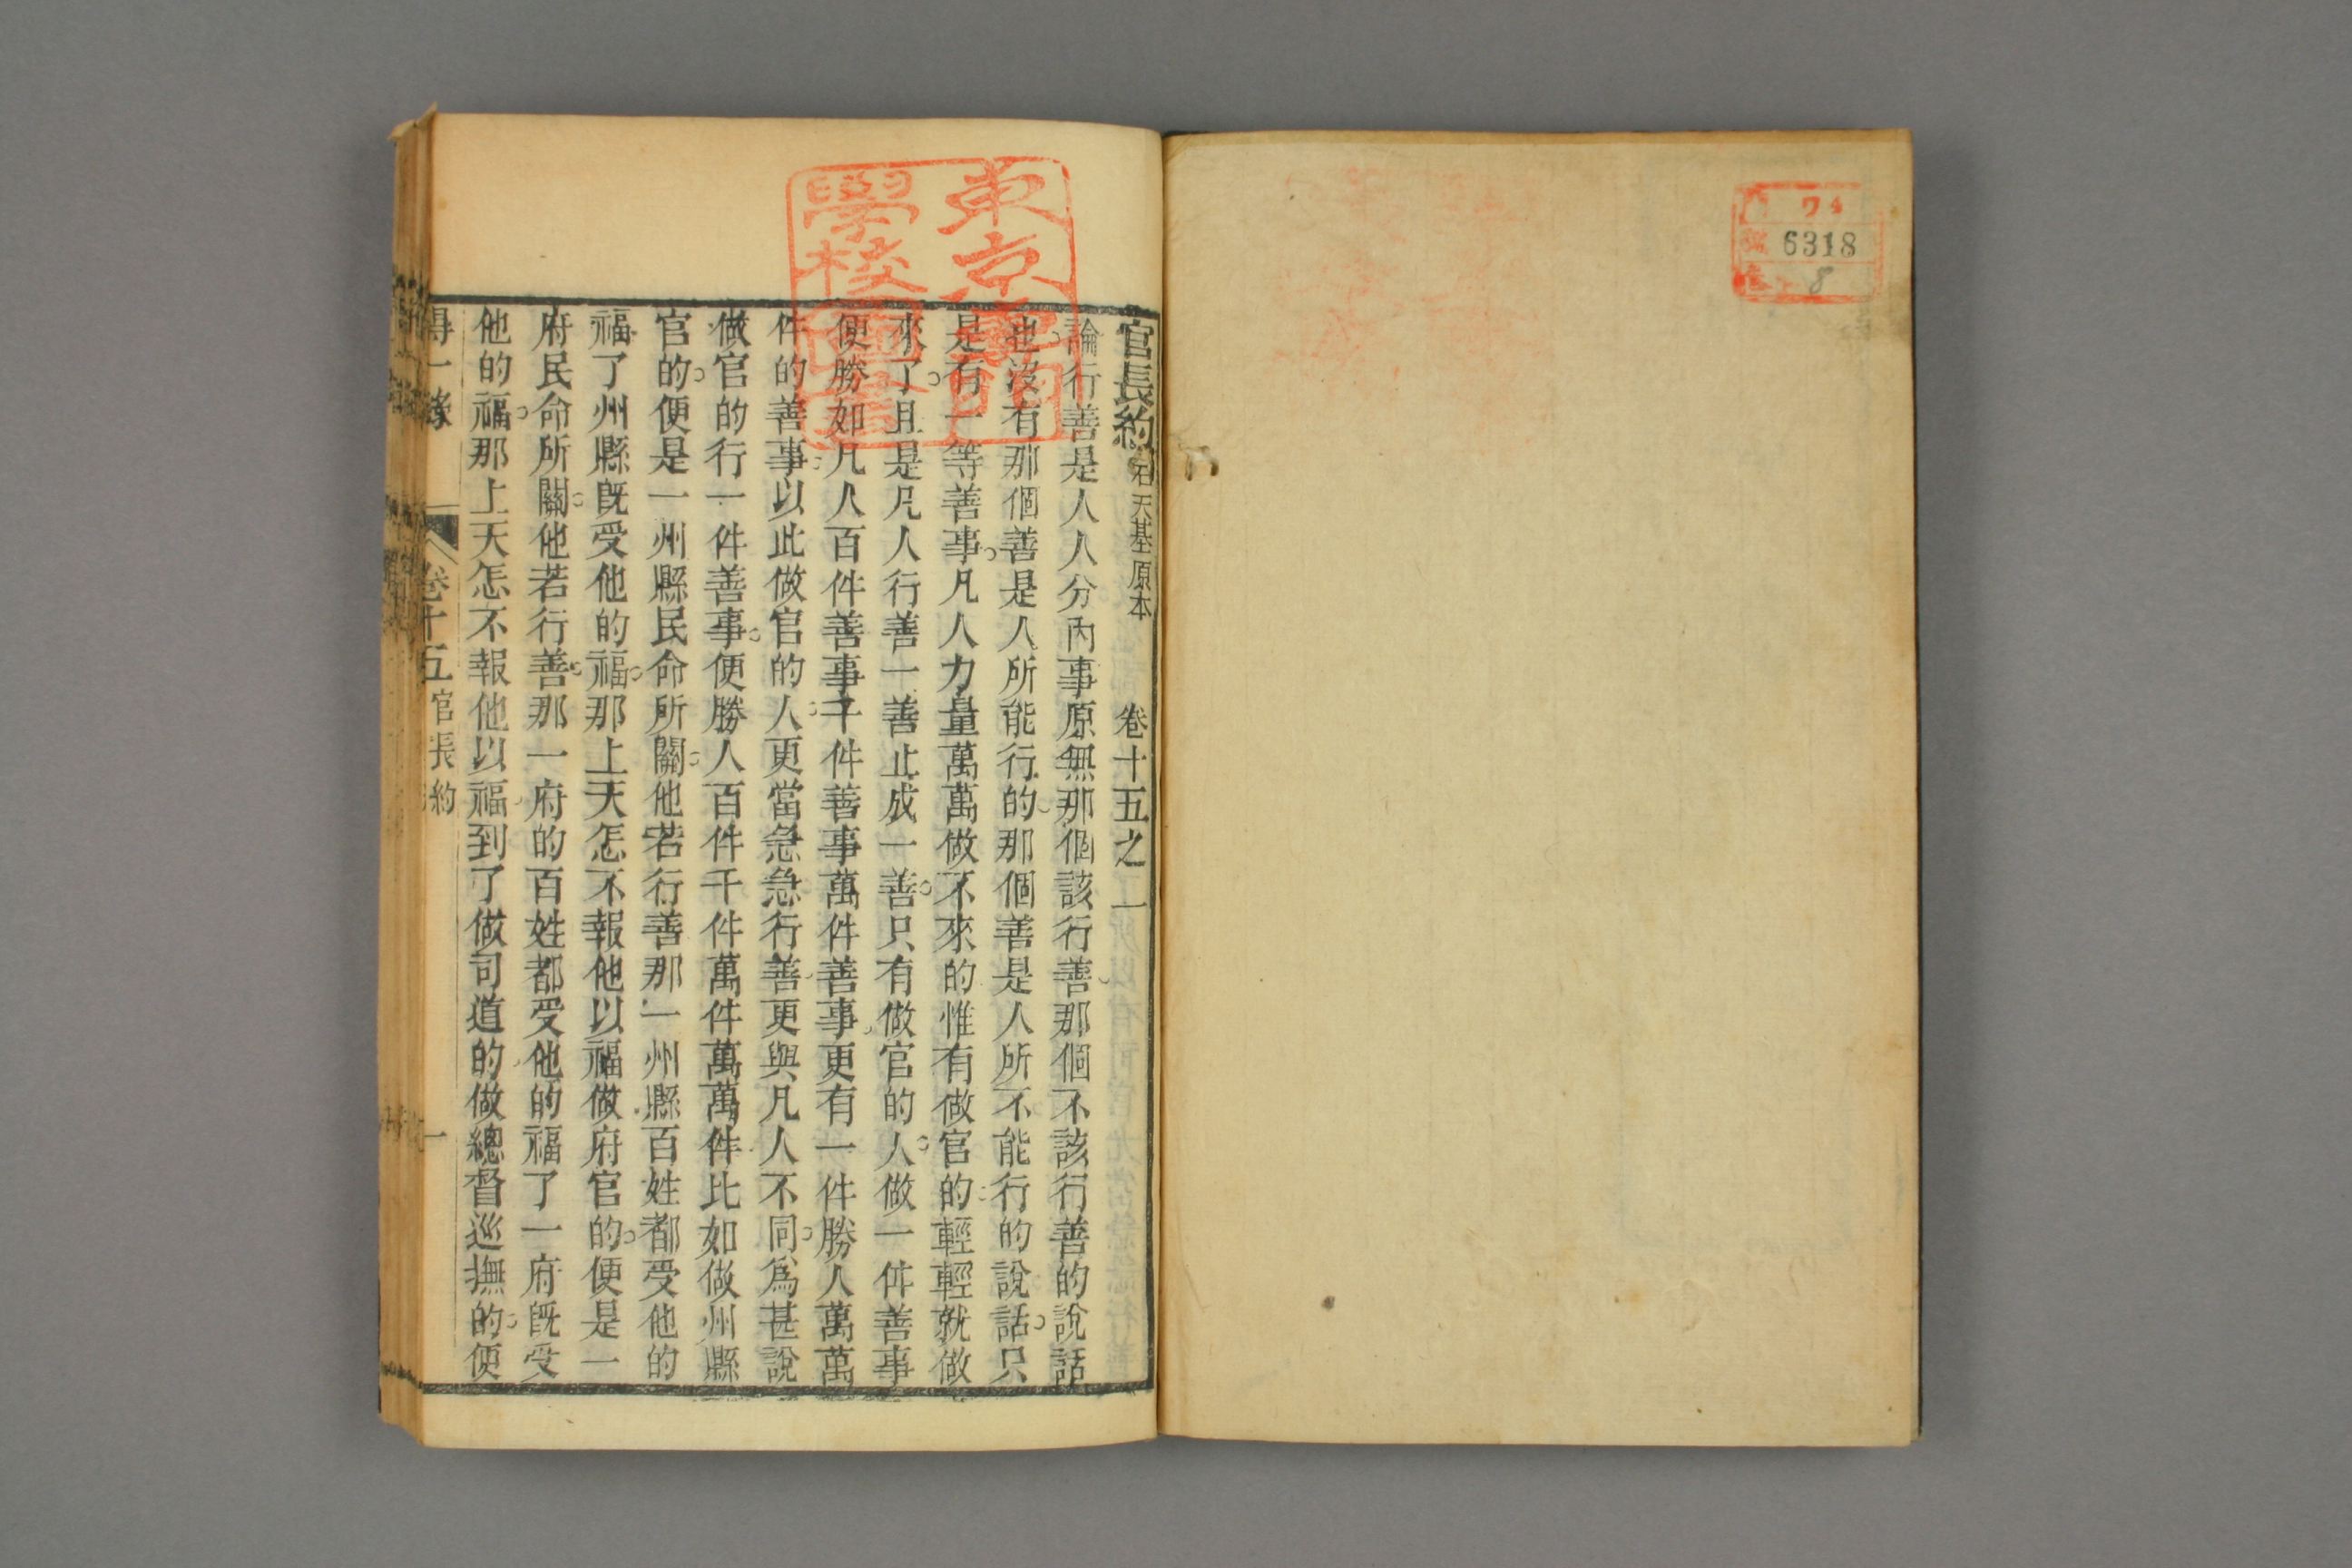 6318
8
官長約 石天基原本 卷十五之一
論行善是人人分內事原無那個該行善那個不該行善的說話
也沒有那個善是人所能行的那個善是人所不能行的說話只
是有一等善事凡人力量萬萬做不來的惟有做官的輕輕就做
來了且是凡人行善一善止成一善只有做官的人做一件善事
便勝如凡人百件善事千件善事萬件善事更有一件勝人萬萬
件的善事以此做官的人更當急急行善更與凡人不同為甚說
做官的行一件善事便勝人百件千件萬件萬萬件比如做州縣
官的便是一州縣民命所關他若行善那一州縣百姓都受他的
福了州縣既受他的福那上天怎不報他以福做府官的便是一
府民命所關他若行善那一府的百姓都受他的福了一府既受
他的福那上天怎不報他以福到了做司道的做總督巡撫的便
得一錄 卷十五 官長約 一
東京專門
學校圖書